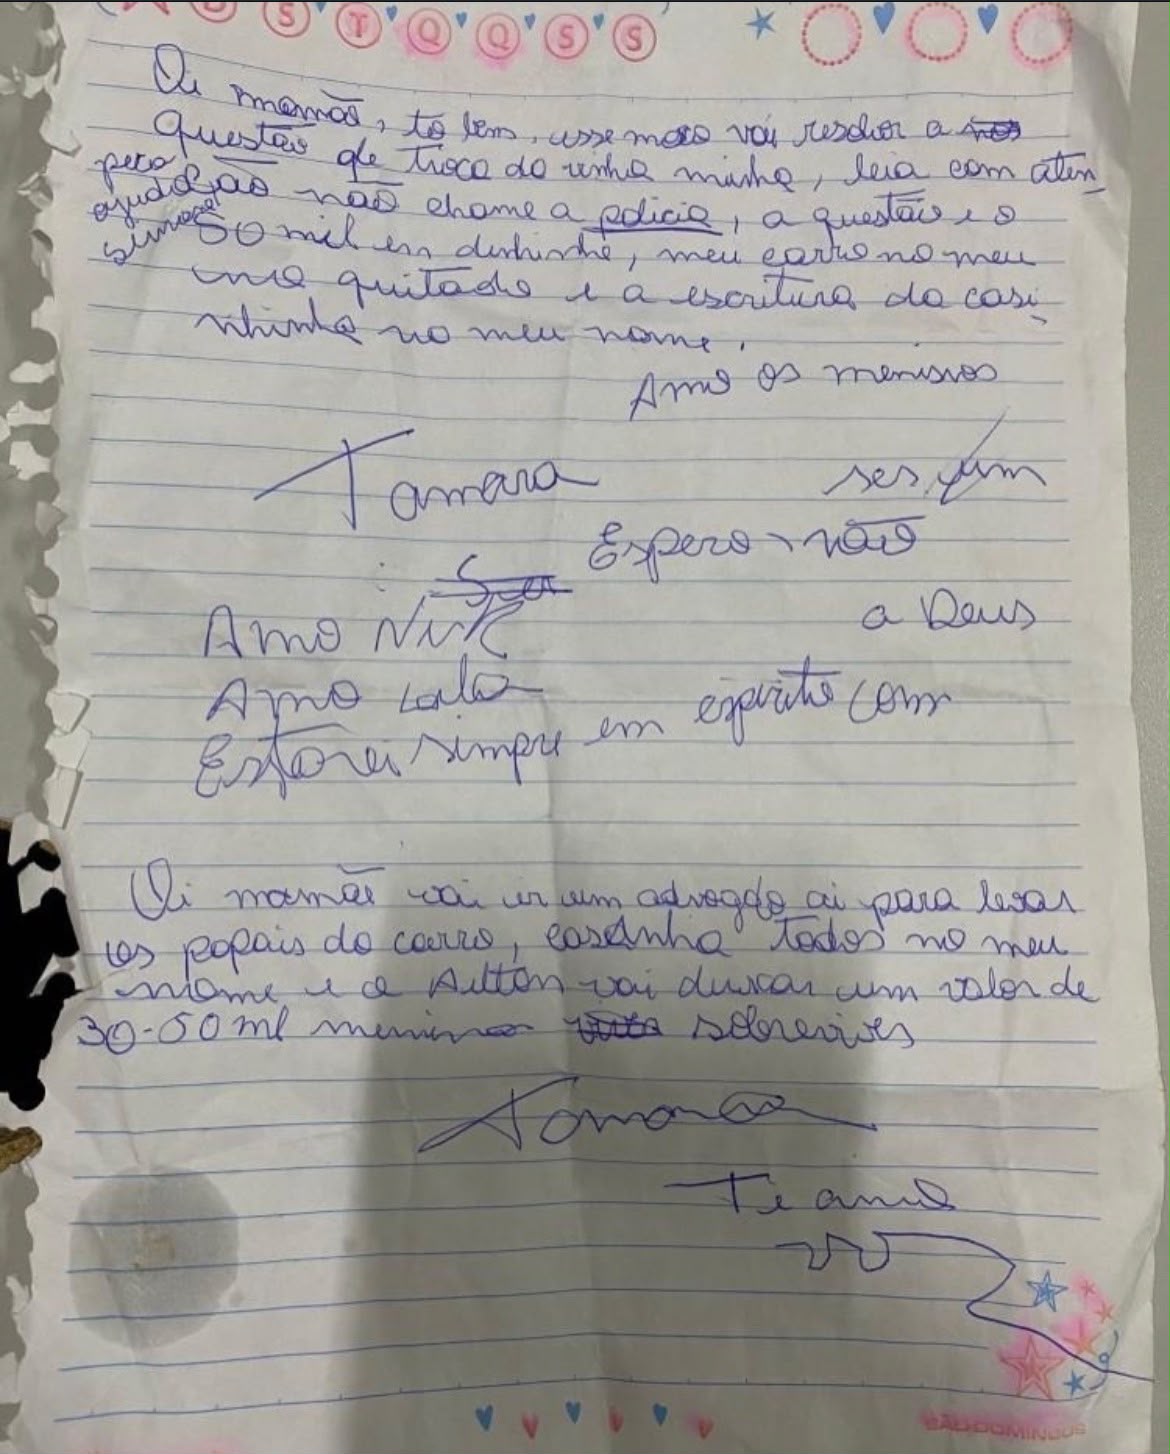 S T Q Q S S
Oi mamãe, tô bem, esse moço vai resolver a
questão de troca da vinha minha, leia com aten
peço ção não chame a policia, a questão e o
ajuda
50 mil em dinhinho, meu carro no meu
quitado e a escritura da casi
nhinha no meu nome.
Amo os meninos
Tamara
Espero não
a Deus
Amo Nick
Amo
Estarei sempre em espirito com
Oi mamãe vai ir um advogdo ai para levar
os papais do carro, casinha todos no meu
nome e o Ailton vai buscar um valor de
30-50 ml
Tamara
Te amo
SÃO DOMINGOS